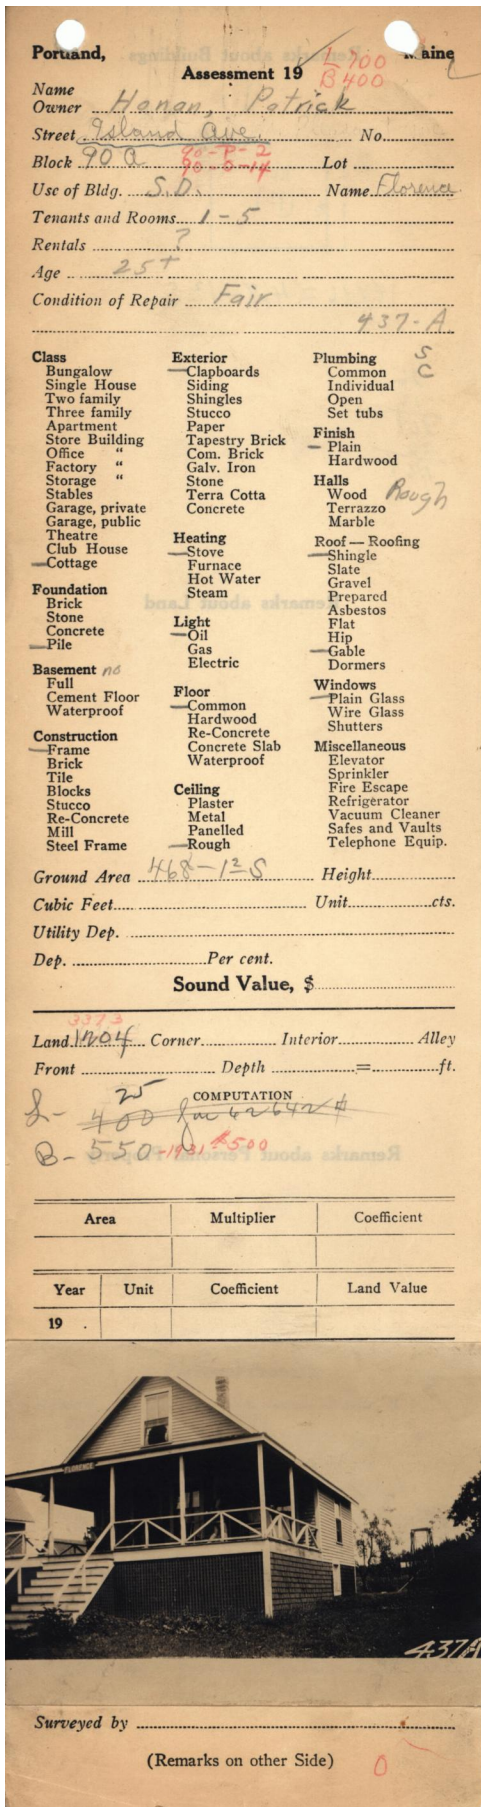 Portland, Maine
L 700
Assessment 19
B 400
Name
Owner Hanan, Patrick
Street Island Ave. No.
90-P-2
Block 90 A 90-O-14 Lot
Use of Bldg. S.D. Name Florence
Tenants and Rooms 1-5
Rentals ?
Age 25+
Condition of Repair Fair
437-A
Class
Bungalow
Single House
Two family
Three family
Apartment
Store Building
Office "
Factory "
Storage "
Stables
Garage, private
Garage, public
Theatre
Club House
Cottage
Foundation
Brick
Stone
Concrete
Pile
Basement no
Full
Cement Floor
Waterproof
Construction
Frame
Brick
Tile
Blocks
Stucco
Re-Concrete
Mill
Steel Frame
Exterior
Clapboards
Siding
Shingles
Stucco
Paper
Tapestry Brick
Com. Brick
Galv. Iron
Stone
Terra Cotta
Concrete
Heating
Stove
Furnace
Hot Water
Steam
Light
Oil
Gas
Electric
Floor
Common
Hardwood
Re-Concrete
Concrete Slab
Waterproof
Ceiling
Plaster
Metal
Panelled
Rough
Plumbing S
Common C
Individual
Open
Set tubs
Finish
Plain
Hardwood
Halls
Wood Rough
Terrazzo
Marble
Roof — Roofing
Shingle
Slate
Gravel
Prepared
Asbestos
Flat
Hip
Gable
Dormers
Windows
Plain Glass
Wire Glass
Shutters
Miscellaneous
Elevator
Sprinkler
Fire Escape
Refrigerator
Vacuum Cleaner
Safes and Vaults
Telephone Equip.
Ground Area 468-1 S Height
Cubic Feet Unit cts.
Utility Dep.
Dep. Per cent.
Sound Value, $
3373
Land Corner Interior Alley
Front Depth = ft.
25
COMPUTATION
L- 400
B- 550-1931 $500
Area Multiplier Coefficient
Year Unit Coefficient Land Value
19 .
FLORENCE
437A
Surveyed by
(Remarks on other Side)
0